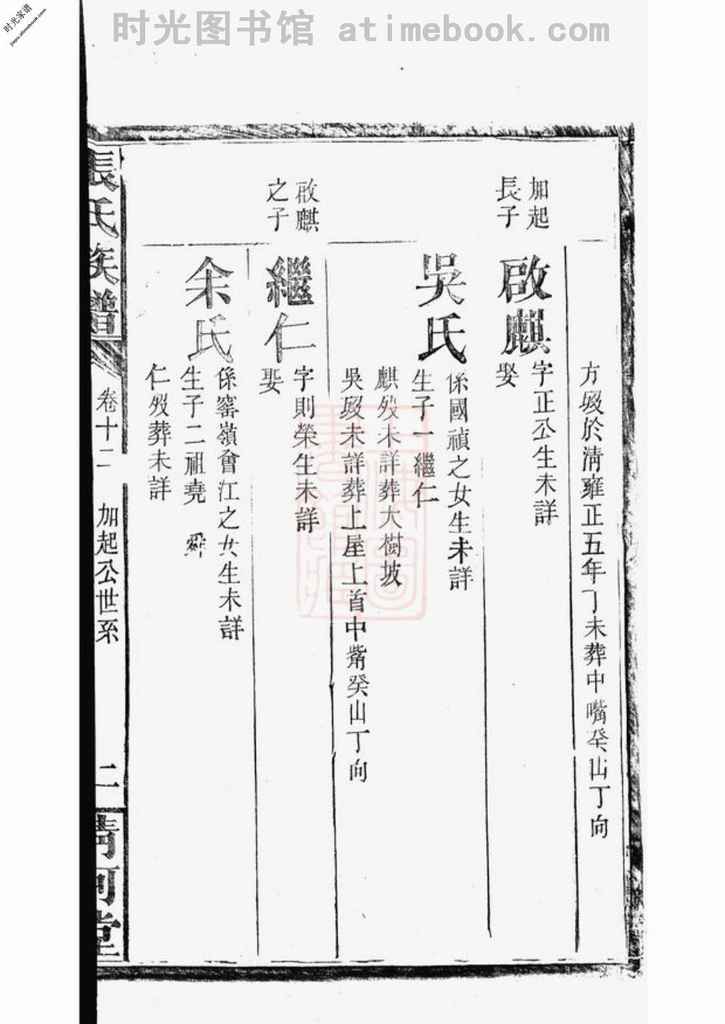 时光图书馆 atimebook.com
时光家谱
方歿於清雍正五年丁未葬中嘴癸山丁向
加起
長子
啟麒
字正公生未詳
娶
吳氏
係國禎之女生未詳
生子一繼仁
麒歿未詳葬大樹坡
吳歿未詳葬上屋上首中觜癸山丁向
啟麒
之子
繼仁
字則榮生未詳
娶
余氏
係窰嶺會江之女生未詳
生子二祖堯 舜
仁歿葬未詳
張氏族譜
卷十二
加起公世系
二
清河堂